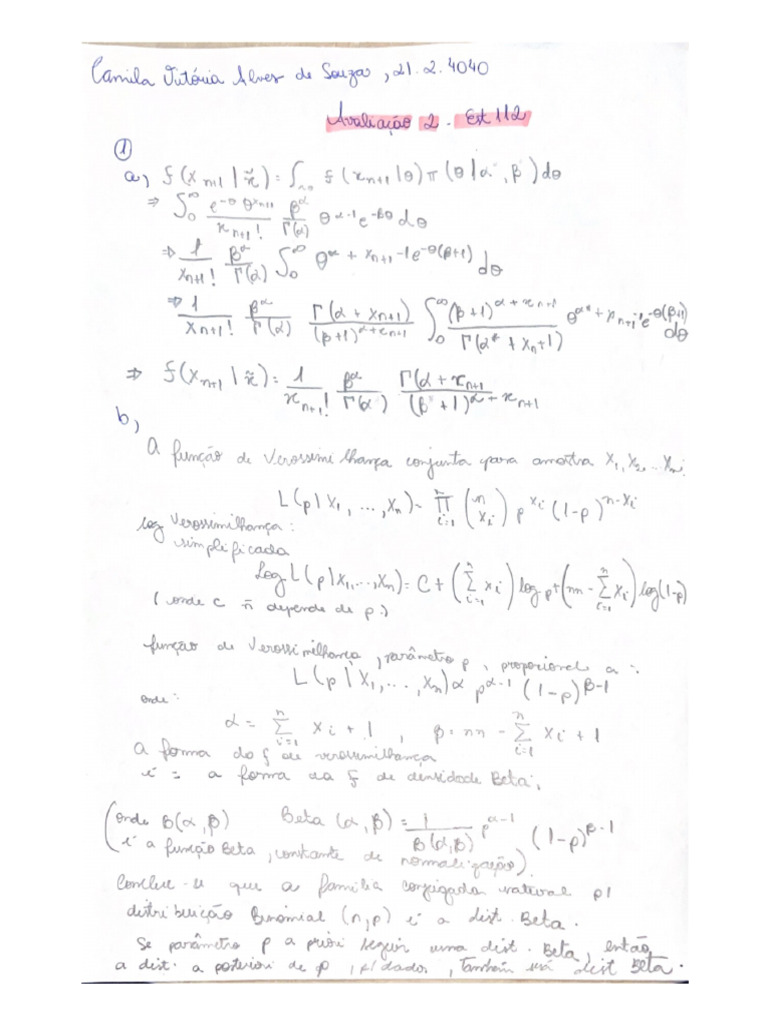 Camila Vitória Alves de Souza, 21.2.4040
Avaliação 2. Est 112
①
a) f(x_{n+1} | x̃) = ∫ f(x_{n+1} | θ) π(θ | α*, β*) dθ
⇒ ∫_0^∞ e^{-θ} θ^{x_{n+1}} / x_{n+1}! β^α / Γ(α) θ^{α-1} e^{-βθ} dθ
⇒ 1 / x_{n+1}! β^α / Γ(α) ∫_0^∞ θ^{α + x_{n+1} - 1} e^{-θ(β+1)} dθ
⇒ 1 / x_{n+1}! β^α / Γ(α) Γ(α + x_{n+1}) / (β+1)^{α + x_{n+1}} ∫_0^∞ (β+1)^{α + x_{n+1}} / Γ(α* + x_{n+1}) θ^{α* + x_{n+1} - 1} e^{-θ(β+1)} dθ
⇒ f(x_{n+1} | x̃) = 1 / x_{n+1}! β^α / Γ(α) Γ(α + x_{n+1} / (β* + 1)^{α + x_{n+1}}
b)
A função de verossimilhança conjunta para amostra X_1, X_2, ... X_n:
L(p | X_1, ..., X_n) = ∏_{i=1}^n (n X_i) p^{X_i} (1-p)^{n-X_i}
log verossimilhança:
simplificada
Log L(p | X_1, ..., X_n) = C + (∑_{i=1}^n X_i) log p + (nn - ∑_{i=1}^n X_i) log(1-p)
(onde C ñ depende de p.)
função de verossimilhança, parâmetro p, proporcional a:
L(p | X_1, ..., X_n) α p^{α-1} (1-p)^{β-1}
onde:
α = ∑_{i=1}^n X_i + 1, β = nn - ∑_{i=1}^n X_i + 1
a forma do f de verossimilhança
é = a forma da f de densidade Beta,
(onde B(α, β) Beta (α, β) = 1 / B(α, β) p^{α-1} (1-p)^{β-1}
é a função Beta, constante de normalização).
Conclui-se que a família conjugada natural p/
distribuição Binomial (n, p) é a dist. Beta.
Se parâmetro p a priori seguir uma dist. Beta, então
a dist. a posteriori de p, p/ dados, também será dist Beta.